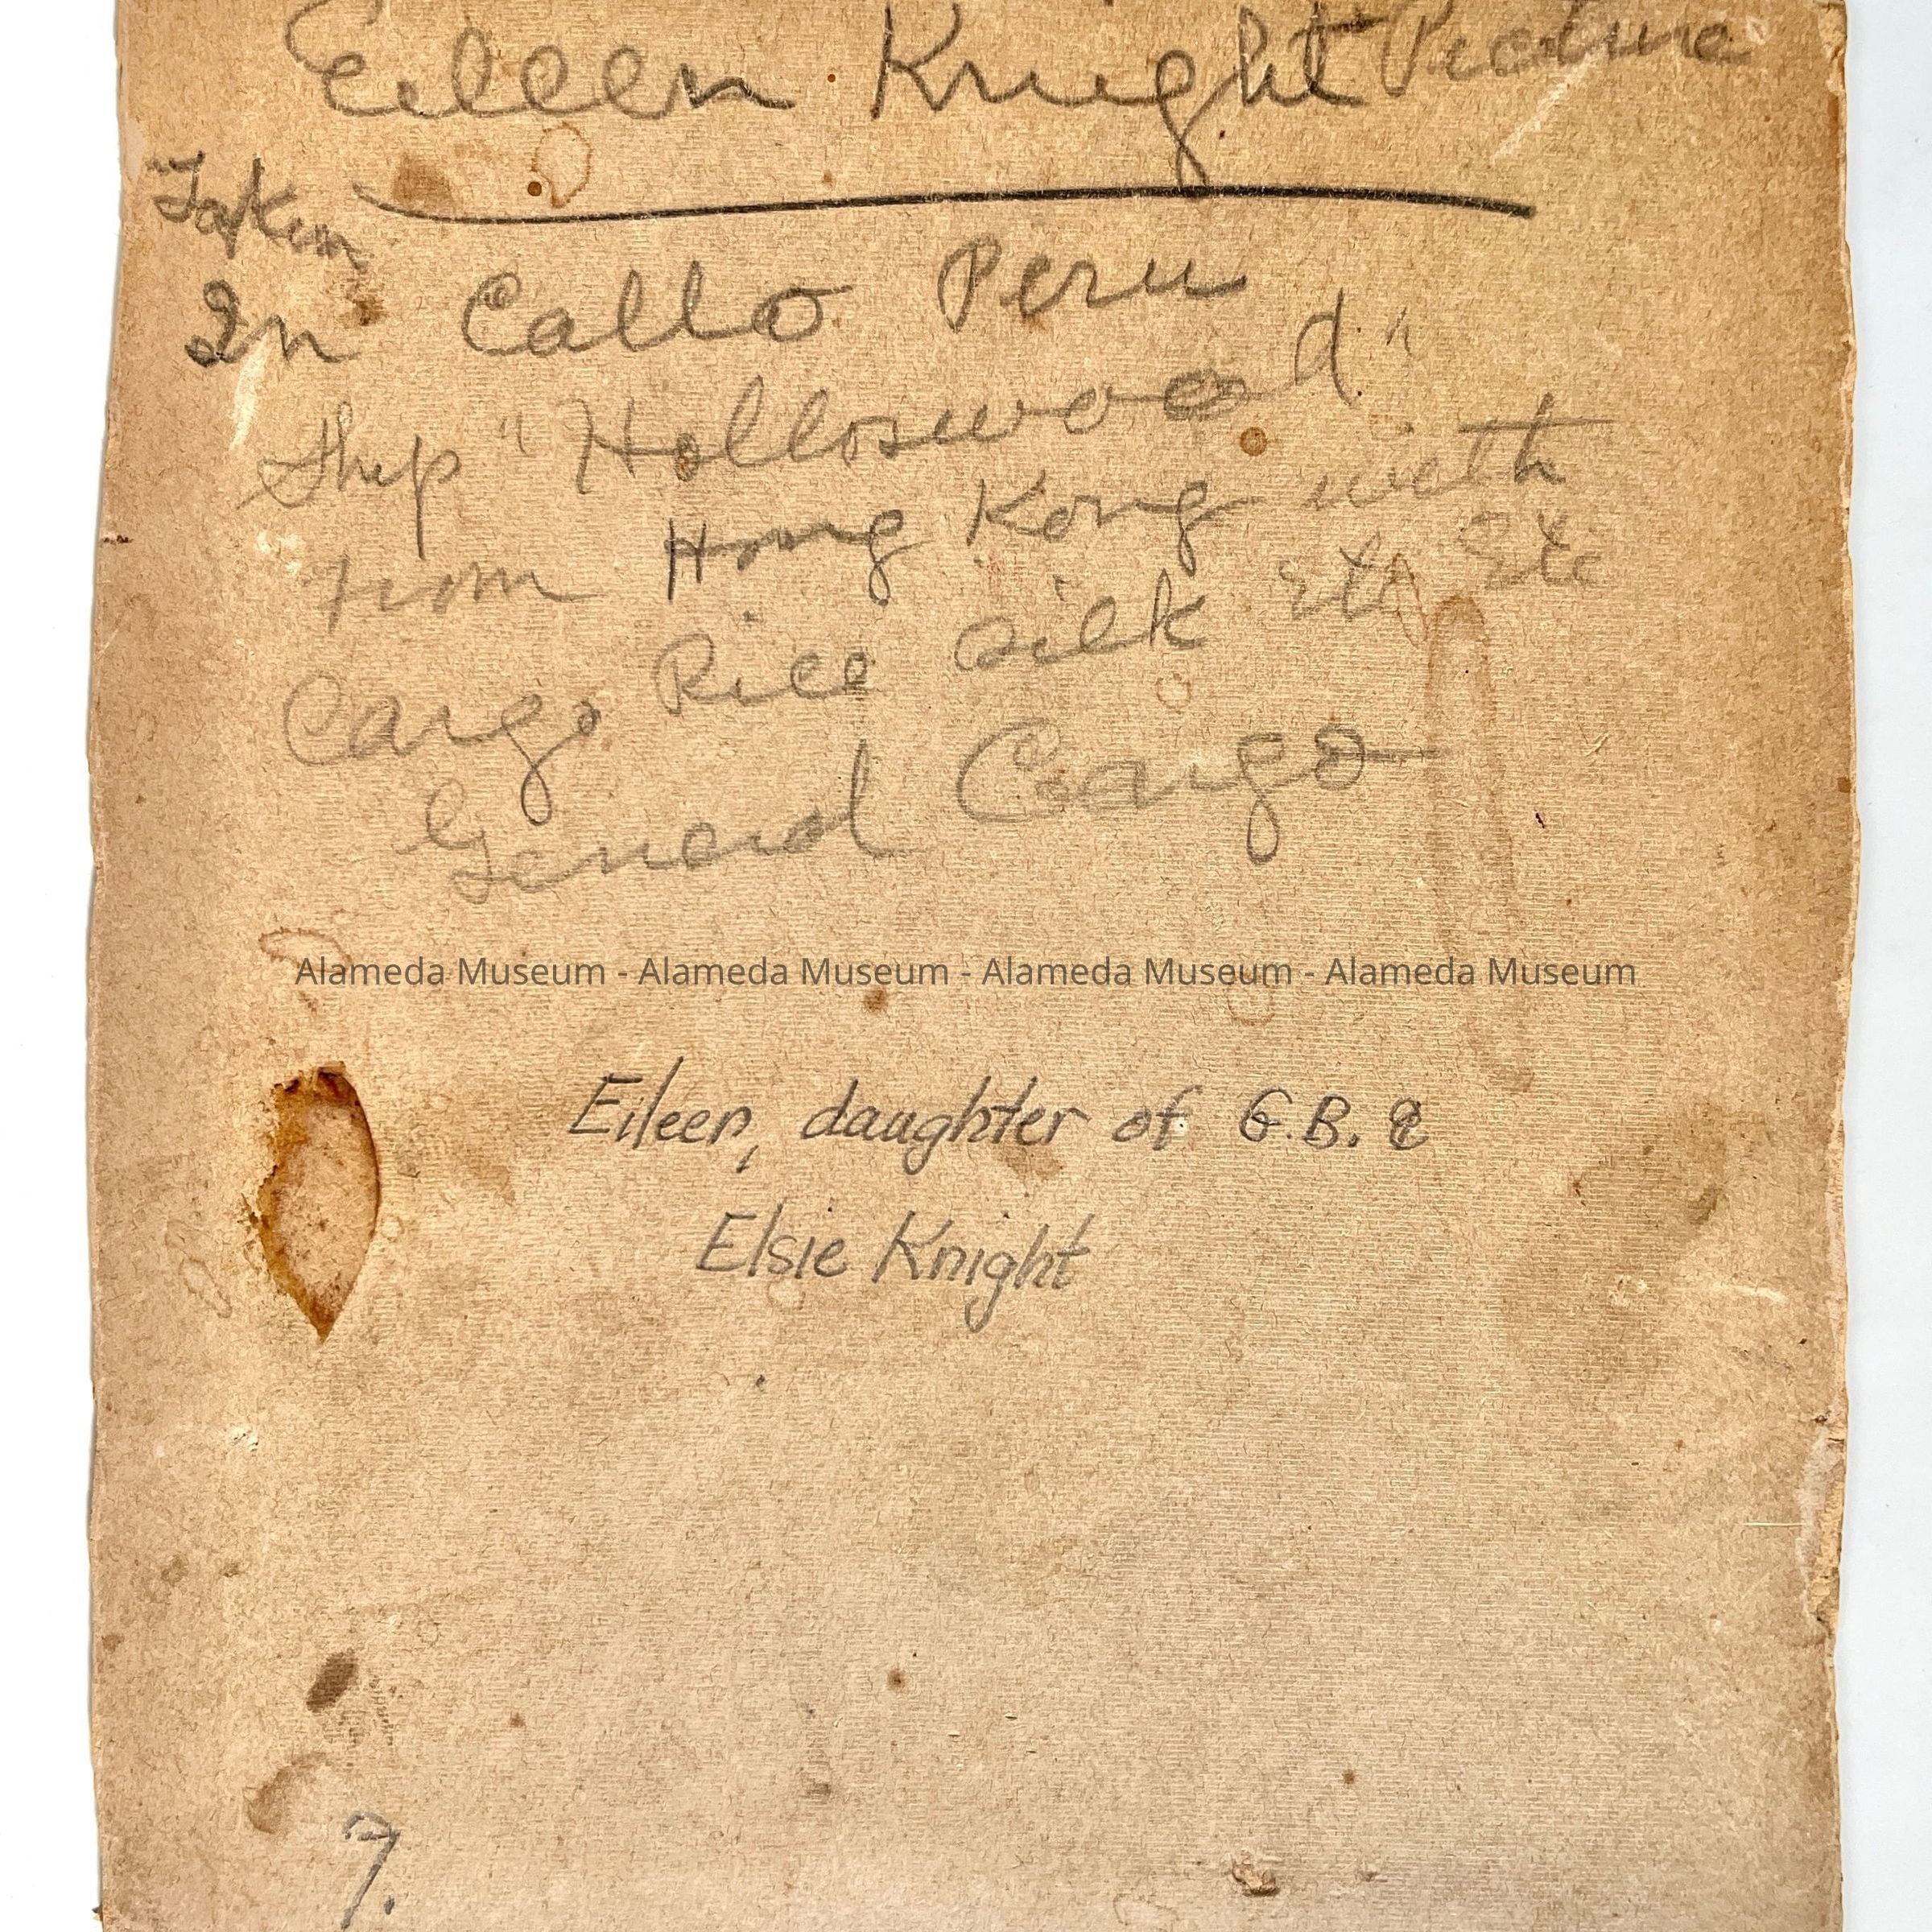 Eileen Knight Picture
Taken
In Callo Peru
Ship "Holloswood"
from Hong Kong with
Cargo Rice Silk Etc Etc
General Cargo
Alameda Museum - Alameda Museum - Alameda Museum - Alameda Museum
Eileen, daughter of G.B. &
Elsie Knight
7.